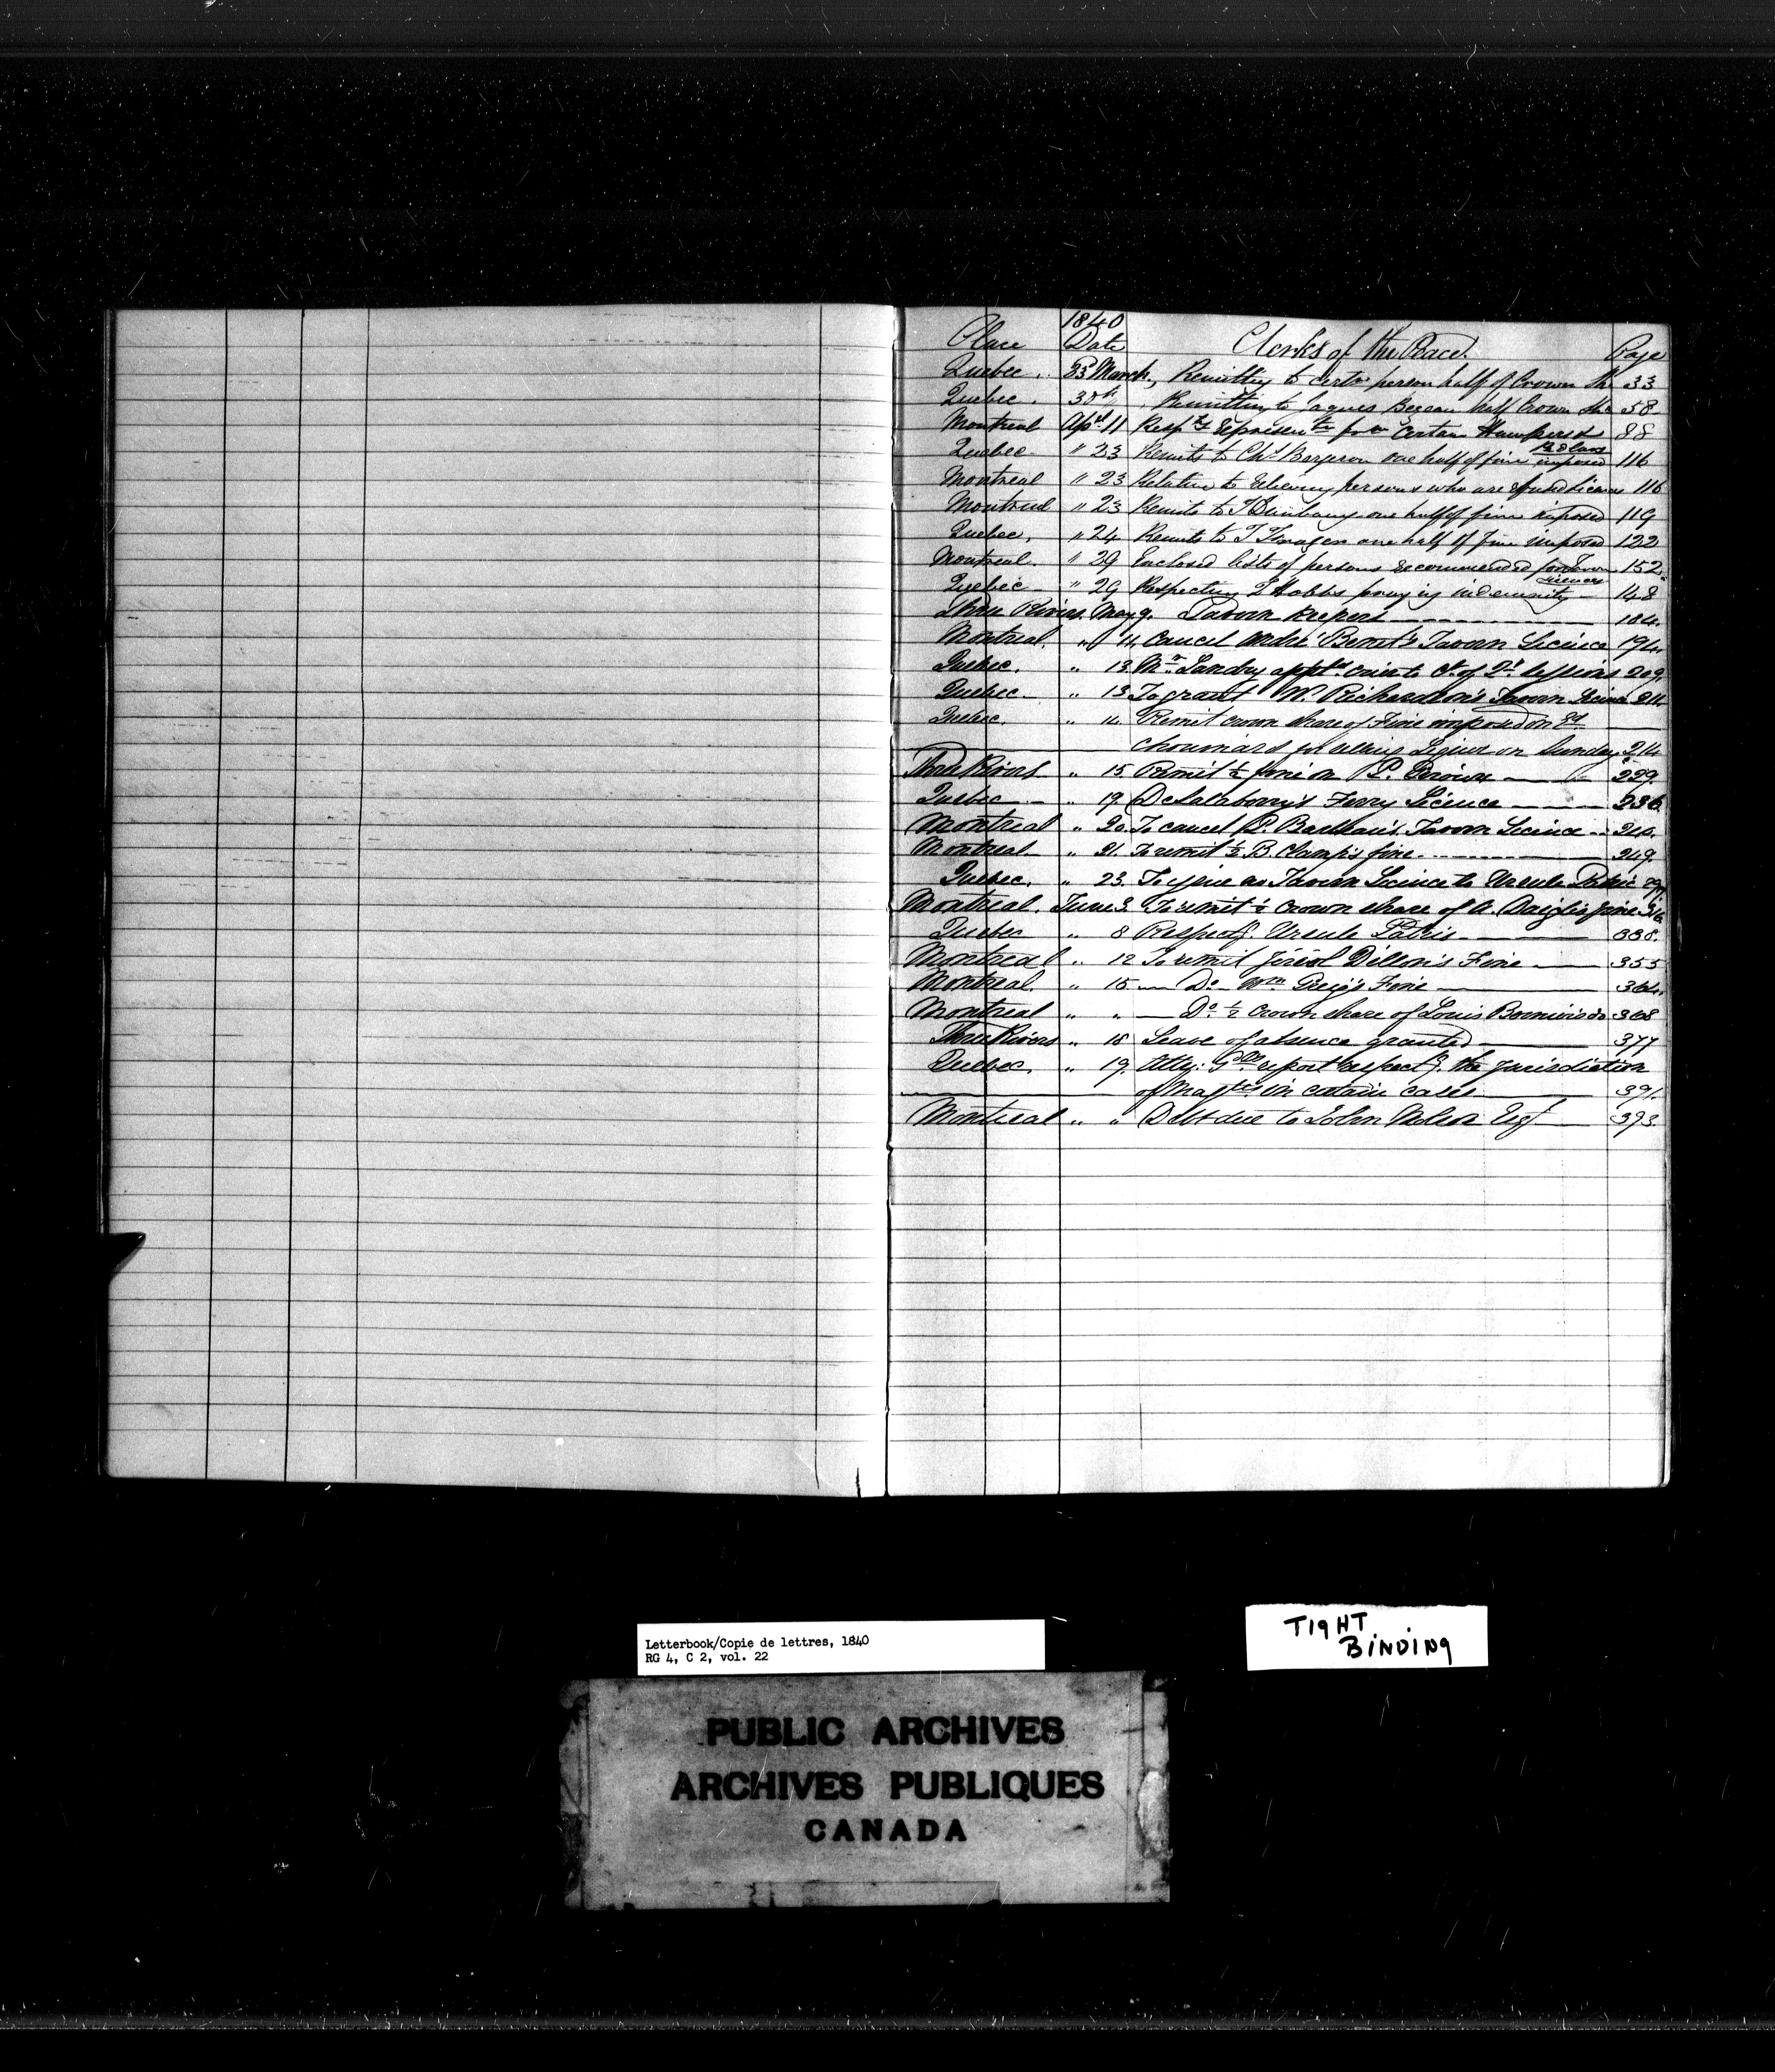 1840
Place Date Clerks of the Peace. Page
Quebec . 23 March, Remitting to certn person half of Crown Sh 33
Quebec . 30th Remitting to Jaques Bureau half Crown Sha 58
Montreal Apl 11 Respts for certain Hawkers & 88
Pedlars
Quebec " 23 Remits to Chs Bergeron one half of fine imposed 116
Montreal " 23 Relative to persons who are licence 116
Montreal " 23 Remits to T one half of fine imposed 119
Quebec, " 24 Remits to T Finagen one half of fine imposed 122
Montreal. " 29 Enclosed lists of persons recommended for Tavern 152
Licences
Quebec " 29 Respecting L Hobbs praying indemnity 148
Three Rivers. May 9. Tavern Keepers 184.
Montreal. " 11, Cancel André Benet's Tavern Licence 194.
Quebec. " 13. Mr Landry appd crier to Ct of Qr Sessions 209.
Quebec " 13 To grant W. Richardson's Tavern Licence 211.
Quebec. " 14. Remit crown share of Fine imposed on Ed
Chouinard for selling Liquor on Sunday 214
Three Rivers " 15 Remit ½ fine on P. 229.
Quebec " 19. DeSalaberry's Ferry Licence 236.
Montreal " 20. To cancel P. Tavern Licence 240.
Montreal. " 21. To remit ½ B. Clamp's fine 249.
Quebec. " 23. To issue a Tavern Licence to Ursule 297
Montreal. June 3. To remit ½ crown share of A. Daigle's fine 316
Quebec " 8 Respectg. Ursule Patris 338.
Montreal " 12 To remit Dillon's Fine 355
Montreal. " 15 Do Wm Greig's Fine 364.
Montreal " " Do ½ crown share of Louis do 368
Three Rivers " 18 Leave of absence granted 377
Quebec. " 19. Atty: Gnl report respectg. the jurisdiction
of Magtes in certain cases 391.
Montreal " " Debt due to John Molson Esqr 393.
Letterbook/Copie de lettres, 1840
RG 4, C 2, vol. 22
TIGHT
BINDING
PUBLIC ARCHIVES
ARCHIVES PUBLIQUES
CANADA